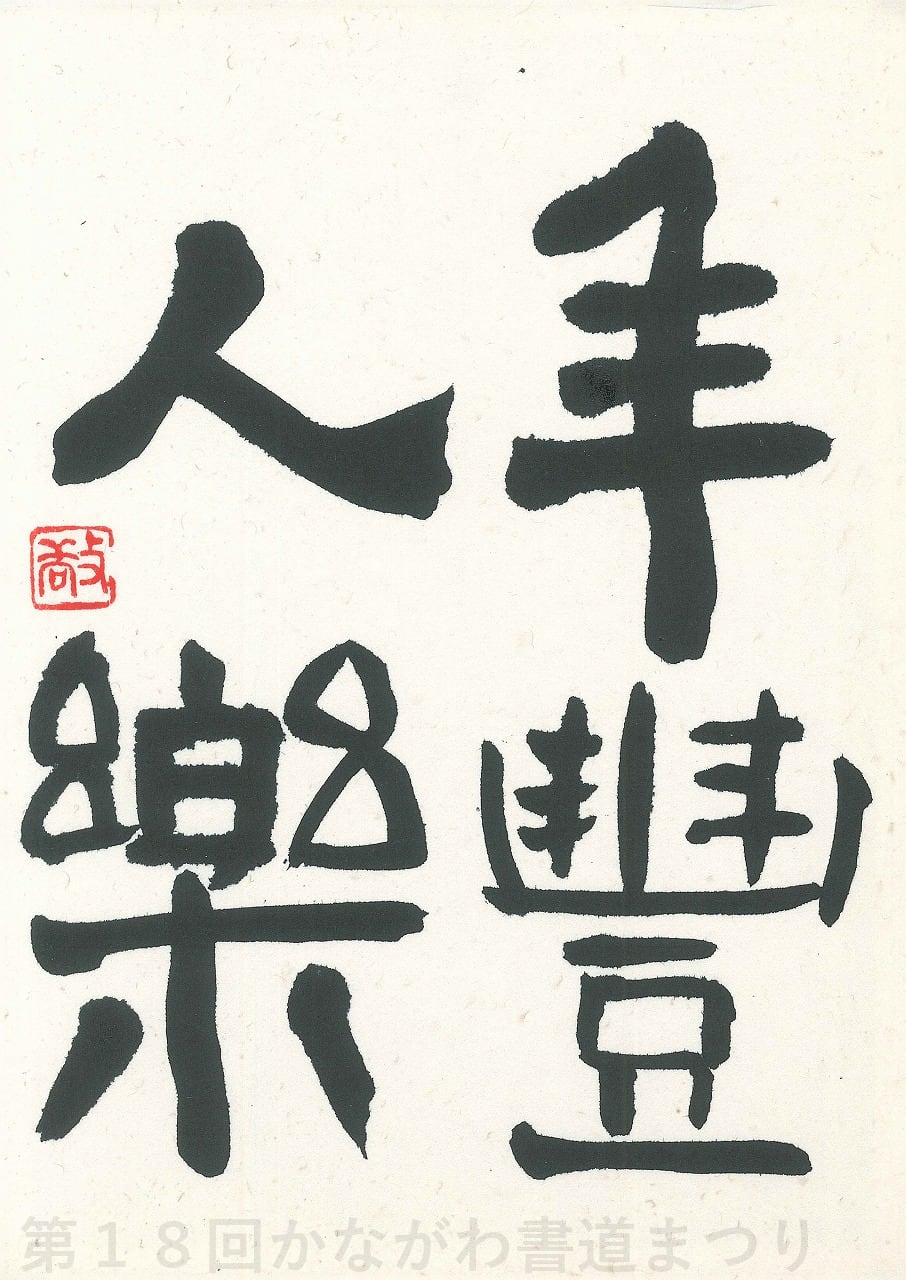 年豐
人樂
第18回かながわ書道まつり